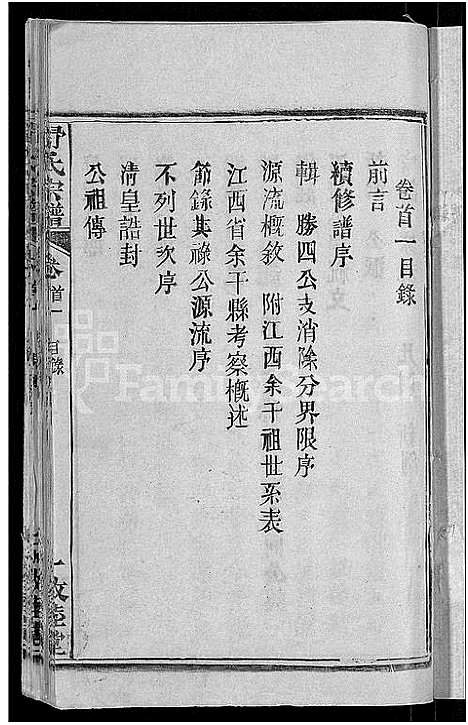 卷首一目錄
前言
續修譜序
輯 勝四公支消除分界限序
源流概敘 附江西余干祖世系表
江西省余干縣考察概述
節錄其祿公源流序
不列世次序
清皇誥封
公祖傳
舒氏宗譜
卷首一
目錄
一
敦睦堂
FamilySearch